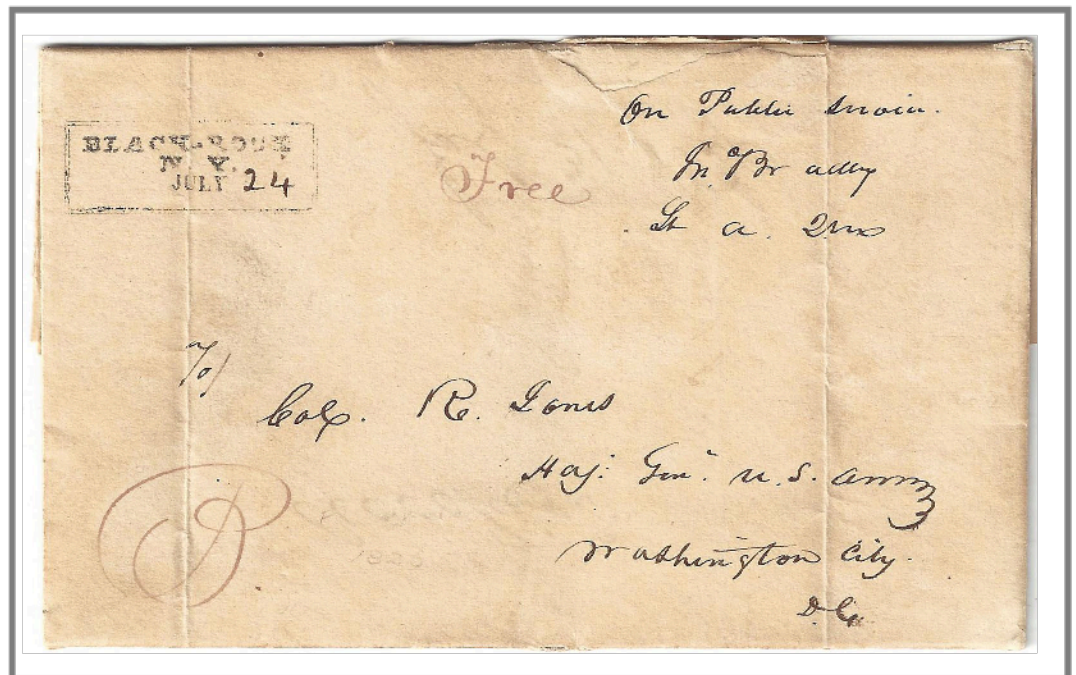 BLACK-ROCK
N. Y.
JULY 24
Free
On Public Servic.
Bradley
Lt a. 2m
To/
Col. R. Jones
Maj: Gen. U.S. Army
Washington City.
D. C.